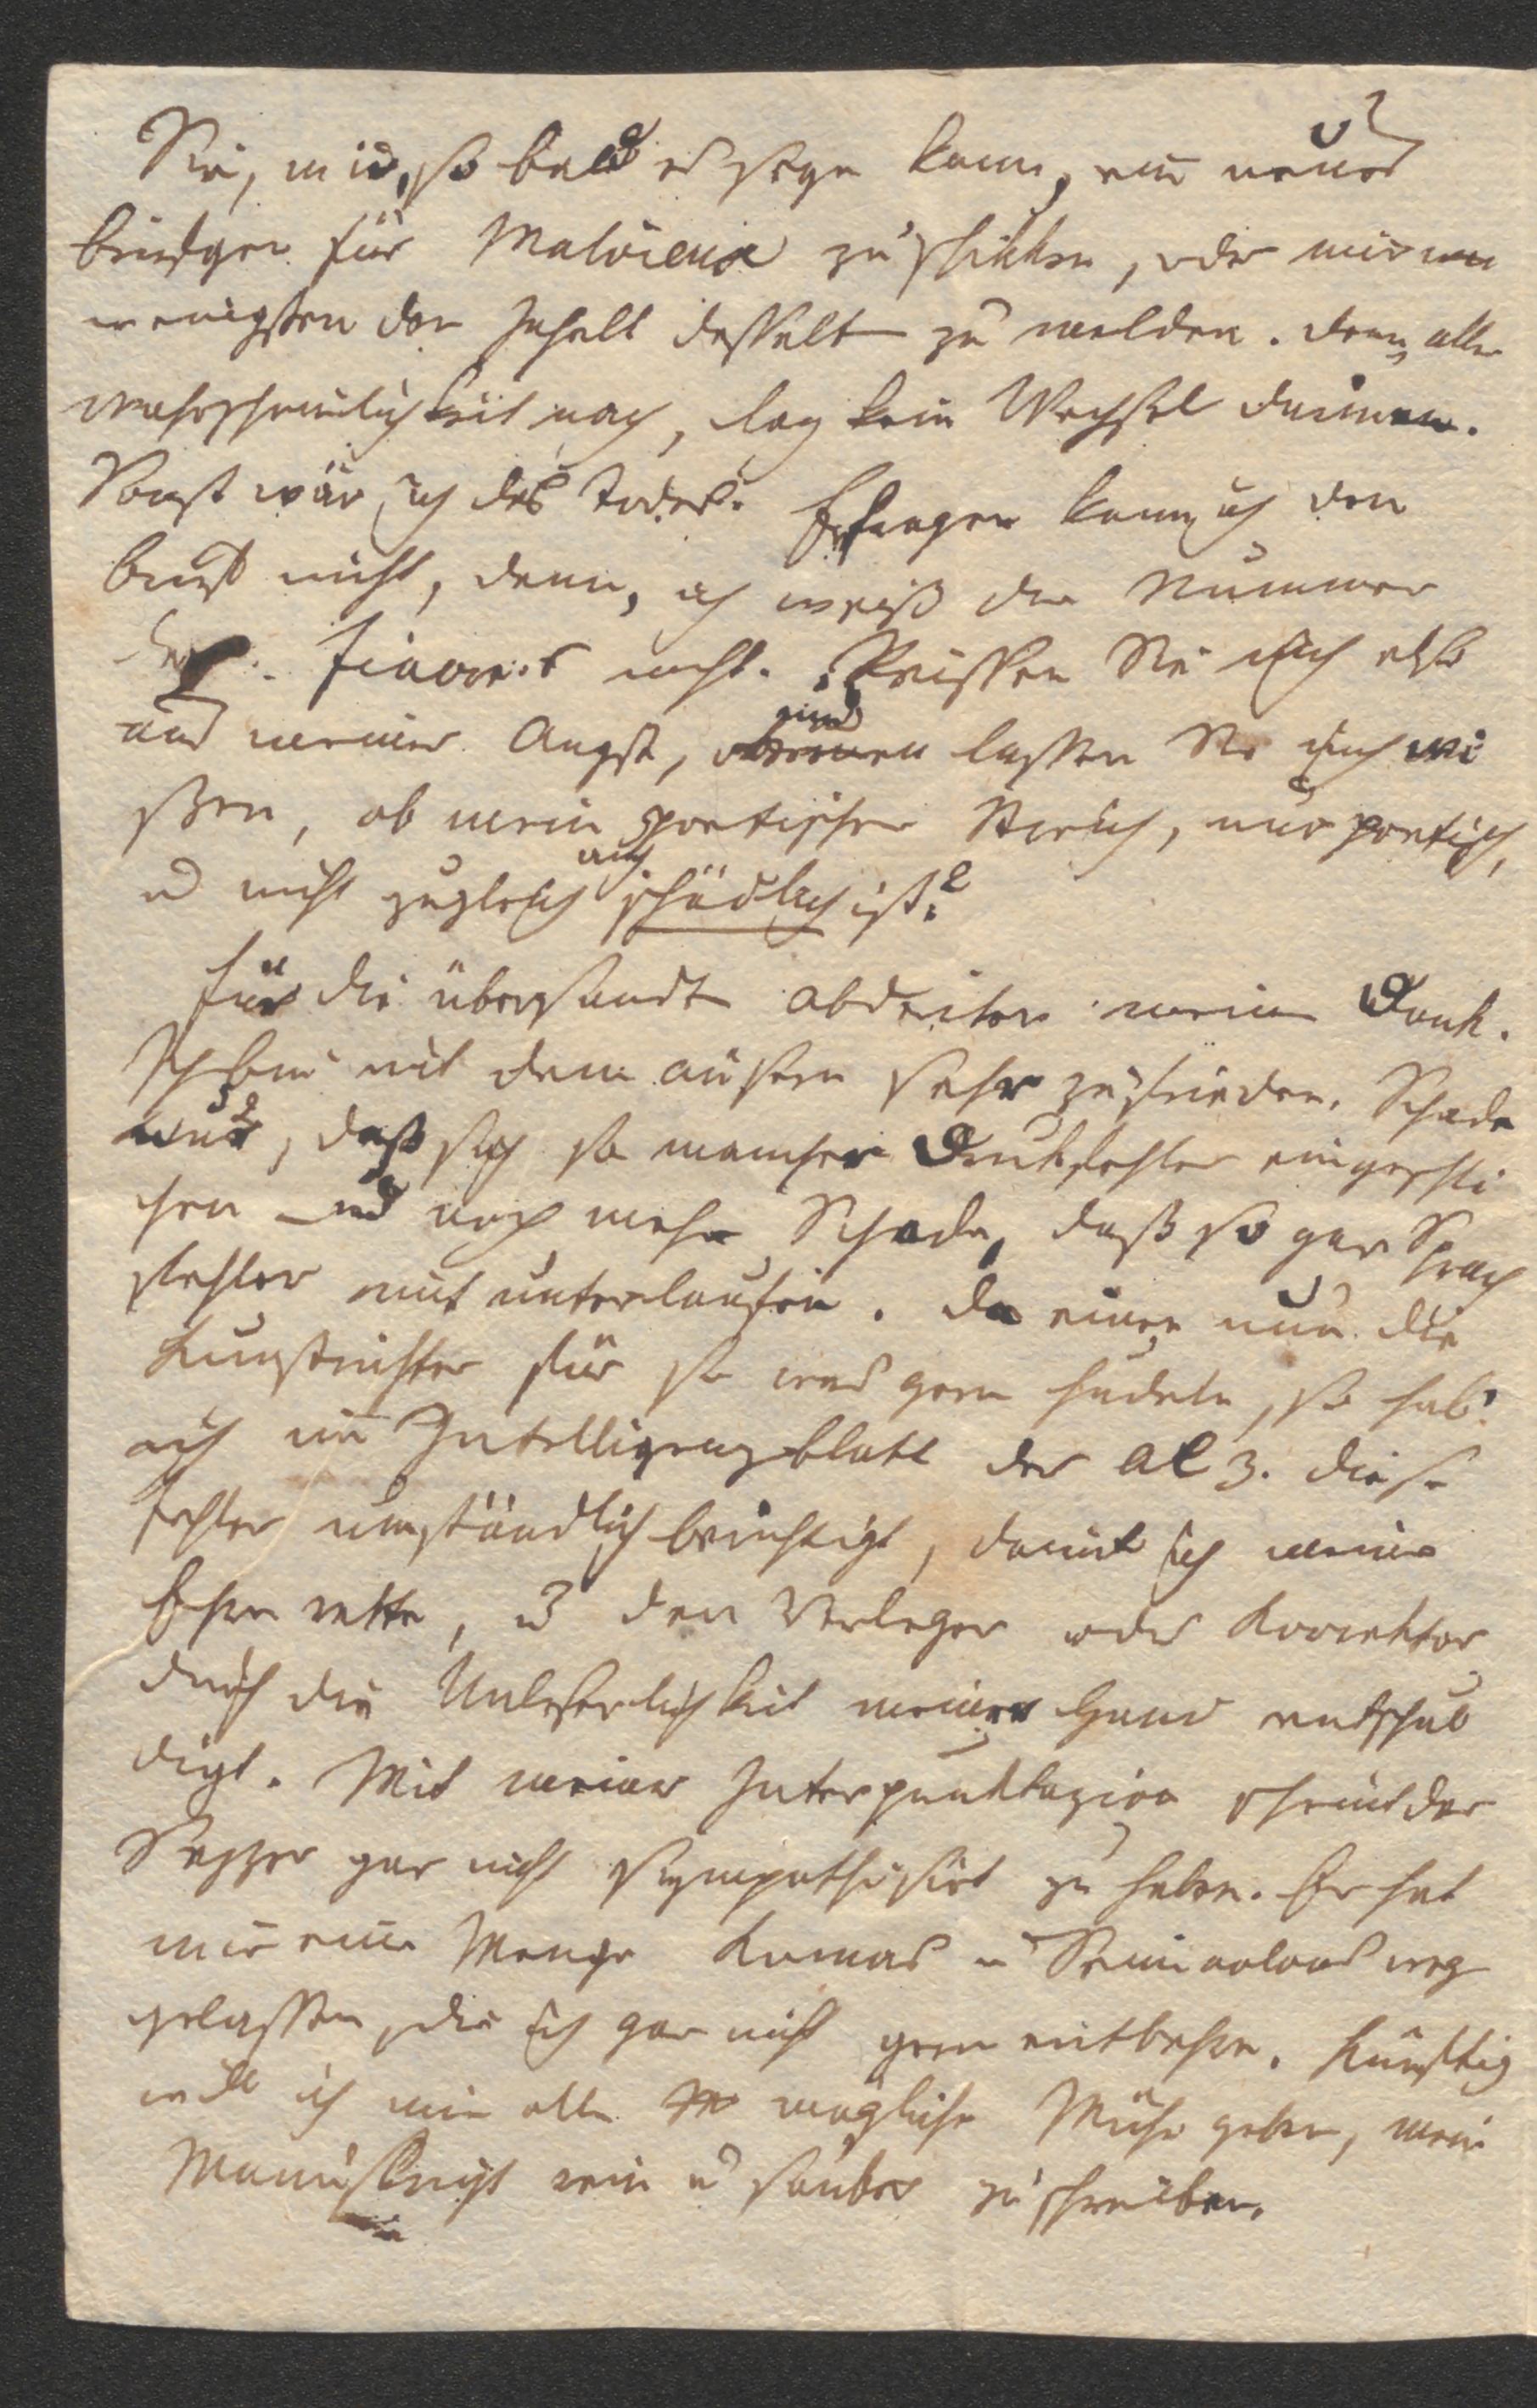 Sie, mir, so bald es seyn kann, ein neues
briefgen für Malvieux zu schikken, oder mir
wenigsten den Inhalt desselben zu melden. Denn, aller
wahrscheinlichkeit nach, lag kein Wechsel darinnen.
Sonst wär ich des Todes. Erfragen kann ich den
brief nicht, denn, ich weiß die Nummer
nicht. Reissen Sie mich also
aus meiner Angst, und lassen Sie mich wi
ßen, ob mein poetischer Streich, nur poetisch,
u nicht zugleich auch schädlich ist?
Für die übersandten Abderiten meinen Dank.
Ich bin mit dem äußern sehr zufrieden. Schade
nur, daß sich so mancher Drukfehler eingeschli
chen und noch mehr Schade, daß so gar Sprach
fehler mit unterlaufen. Da einen nun die
Kunstrichter für so was gern hudeln, so hab'
ich im Intelligenzblatt der ALZ. diese
Fehler umständlich berichtigt, damit ich meine
Ehre rette, u den Verleger oder Korrektor
durch die Unleserlichkeit meiner Hand entschul
digt. Mit meiner Interpunktazion scheint der
Sezzer gar nicht sympathisirt zu haben. Er hat
mir eine Menge Komas u Semicolons weg
gelassen, die ich gar nicht gern entbehre. Künftig
will ich mir alle mögliche Mühe geben, mein
Manuskript rein u sauber zu schreiben.